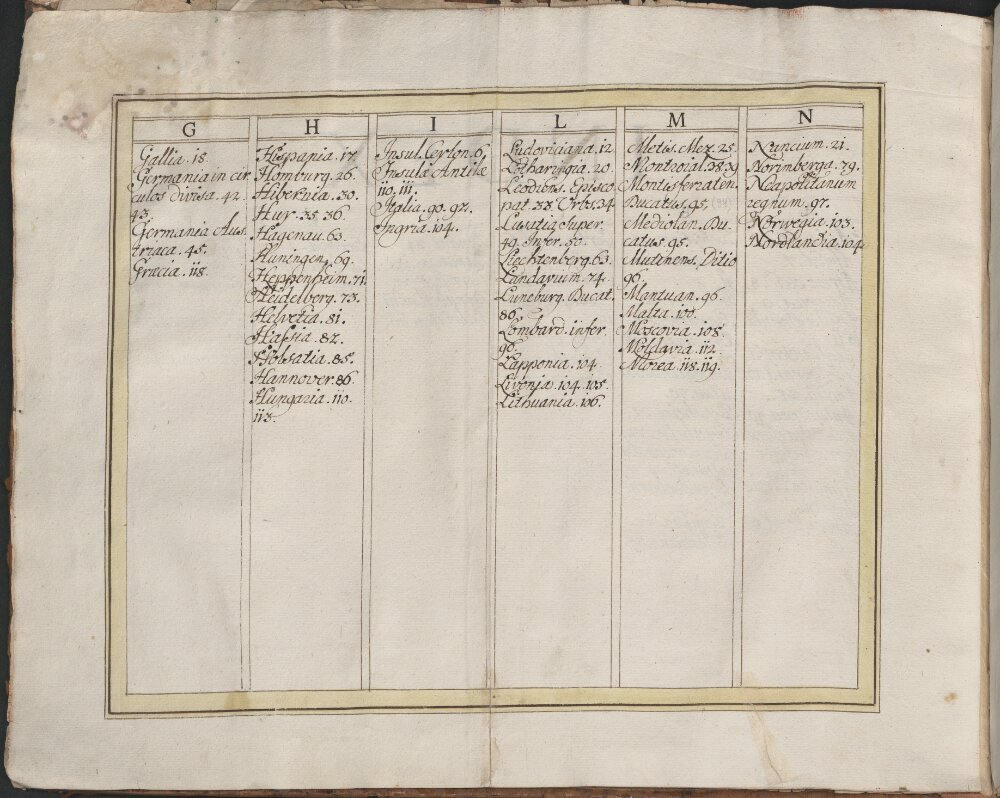 G
Gallia. 18.
Germania in cir
culos divisa. 42.
43.
Germania Aus.
triaca. 45.
Græcia. 118.
H
Hispania. 17.
Homburg. 26.
Hibernia. 30.
Huy. 35. 36.
Hagenau. 63.
Huningen. 69.
Heppenheim. 71.
Heidelberg. 73.
Helvetia. 81.
Hassia. 82.
Holsatia. 85.
Hannover. 86.
Hungaria. 110.
113.
I
Insul. Ceylon. 6.
Insulæ Antilæ
110, 111.
Italia. 90. 92.
Ingria. 104.
L
Ludoviciana. 12
Lotharingia. 20
Leodiens. Episco
pat. 33. Urbs. 34
Lusatia Super.
49. Infer. 50.
Liechtenberg. 63.
Landavium. 74.
Luneburg. Ducat.
86.
Lombard. infer.
90.
Lapponia. 104.
Livonia. 104. 105.
Lithuania. 106.
M
Metis. Mez. 25.
Montroial. 38. 39
Montisferraten.
Ducatus. 95.
Mediolan. Du.
catus. 95.
Mutinens. Ditio
96.
Mantuan. 96.
Malta. 100.
Moscovia. 108.
Moldavia. 112.
Morea. 118. 119.
N
Nancium. 21.
Norimberga. 79.
Neapolitanum
regnum. 97.
Norwegia. 103.
Nordlandia. 104.